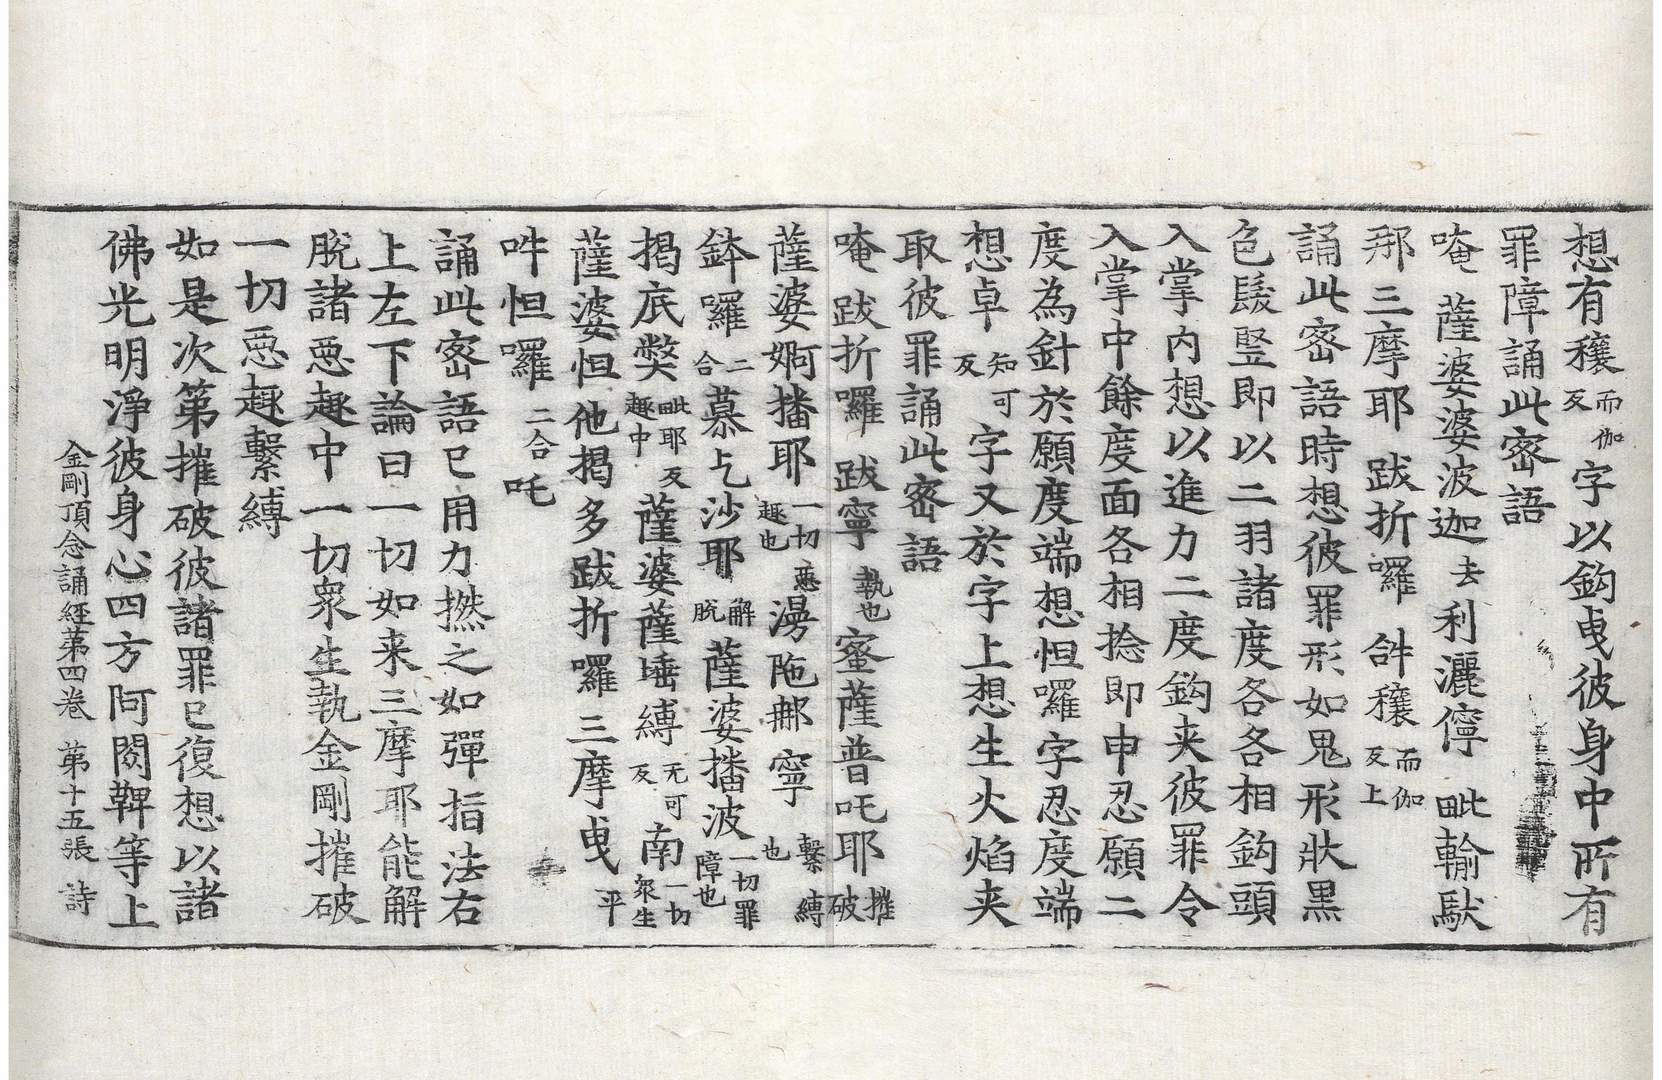 想有穰而伽反字以鈎曵彼身中所有
罪障誦此密語
唵 薩婆婆波迦去利灑儜 毗輸馱
那三摩耶 跋折囉 𤙖穰而伽反上
誦此密語時想彼罪形如鬼形狀黑
色髮竪即以二羽諸度各各相鈎頭
入掌內想以進力二度鈎夾彼罪令
入掌中餘度面各相捻即申忍願二
度為針於願度端想怛囉字忍度端
想卓知可反字又於字上想生火焰夾
取彼罪誦此密語
唵 跋折囉 跋寧執也蜜薩普吒耶摧破
薩婆婀播耶一切惡趣也漫陁郍寧繫縛也
鉢囉二合慕乞沙耶解脫薩婆播波一切罪障也
揭底獘毗耶反趣中薩婆薩埵縛无可反南一切衆生
薩婆怛他揭多跋折囉三摩曵平
吽怛囉二合吒
誦此密語已用力撚之如彈指法右
上左下論曰一切如来三摩耶能解
脫諸惡趣中一切衆生執金剛摧破
一切惡趣繫縛
如是次第摧破彼諸罪已復想以諸
佛光明淨彼身心四方阿閦鞞等上
金剛頂念誦經第四卷 第十五張 詩